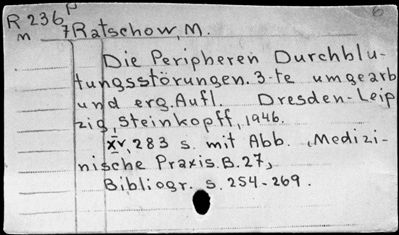 R 236 P 6
m 7 Ratschow, M.
Die Peripheren Durchblu-
tungsstörungen. 3-te umgearb
und erg. Aufl. Dresden-Leip
zig, Steinkopff, 1946.
XV, 283 s. mit Abb. (Medizi-
nische Praxis. B. 27)
Bibliogr. s. 254-269.